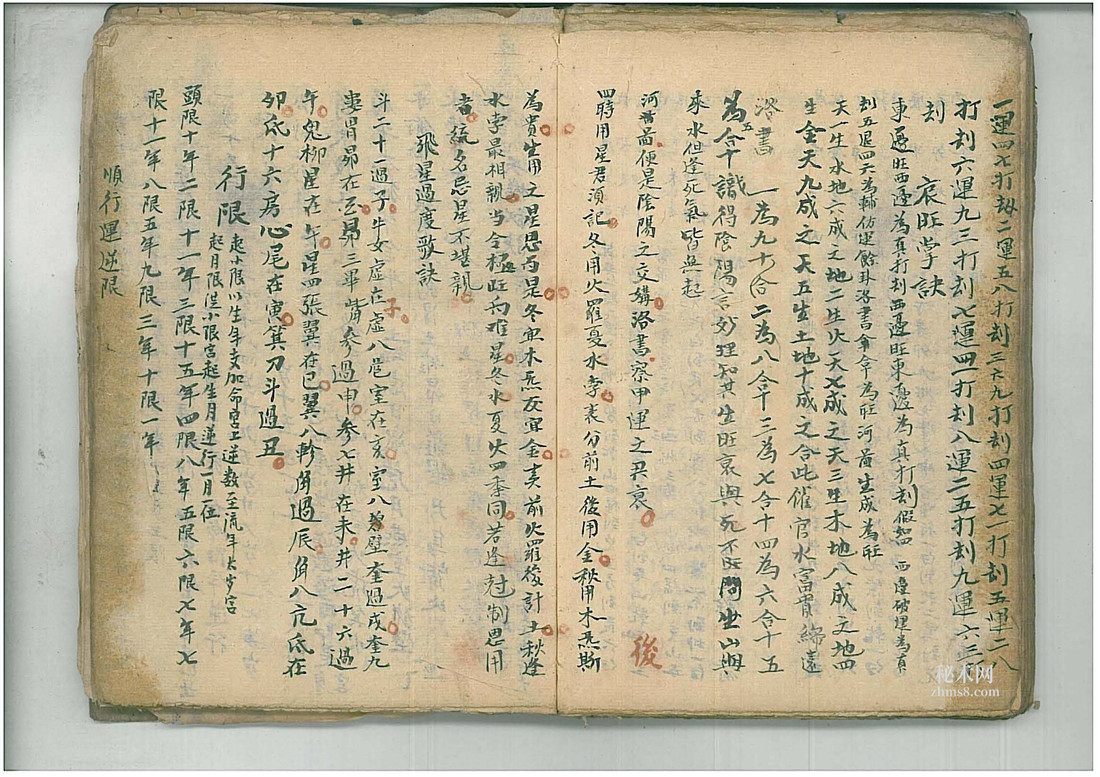 一運四七打劫二運五八打刦三六九打刦四運七一打刦五運二八
打刦六運九三打刦七運四一打刦八運二五打刦九運六三打
刦 衰旺學訣
東邊旺西邊為真打刦西邊旺東邊為真打刦假如西邊破運為真
刦五退四六為輔仿運餘珠洛書合令為旺河圖生成為旺
天一生水地六成之地二生火天七成之天三生木地八成之地四
生金天九成之天五生土地十成之合此催官水富貴綿遠
洛書 一為九十合二為八合十三為七合十四為六合十五
為五合十識得陰陽玄妙理知其生旺衰與死不旺問坐山與
來水但逢死氣皆無起
河圖便是陰陽之交媾洛書察甲運之興衰
四時用星君須記冬用火羅夏水孛衰分前土後用金秋用木炁斯
後
為貴生用之星恩与是冬宜木炁友宜金夫前火羅後計土秋逢
水孛最相親当令極旺為难星冬水夏火四季同若逢尅制恩用
者統名忌星不堪親
飛星過度歌訣
斗二十一過子牛女虛在子虛八危室在亥室八壁奎過戌奎九
婁胃昴在酉昴三畢觜參過申參七井在未井二十六過
午鬼柳星在午星四張翼在巳翼八軫角過辰角八亢氐在
卯氐十六房心尾在寅箕刀斗過丑
行限 起小限以生年支加命宮上逆数至流年太岁宫
起月限從小限宮起生月逆行一月一位
頭限十年二限十一年三限十五年四限八年五限六限七年七
限十一年八限五年九限三年十限一年
順行運逆限
秘术网
zhms8.com